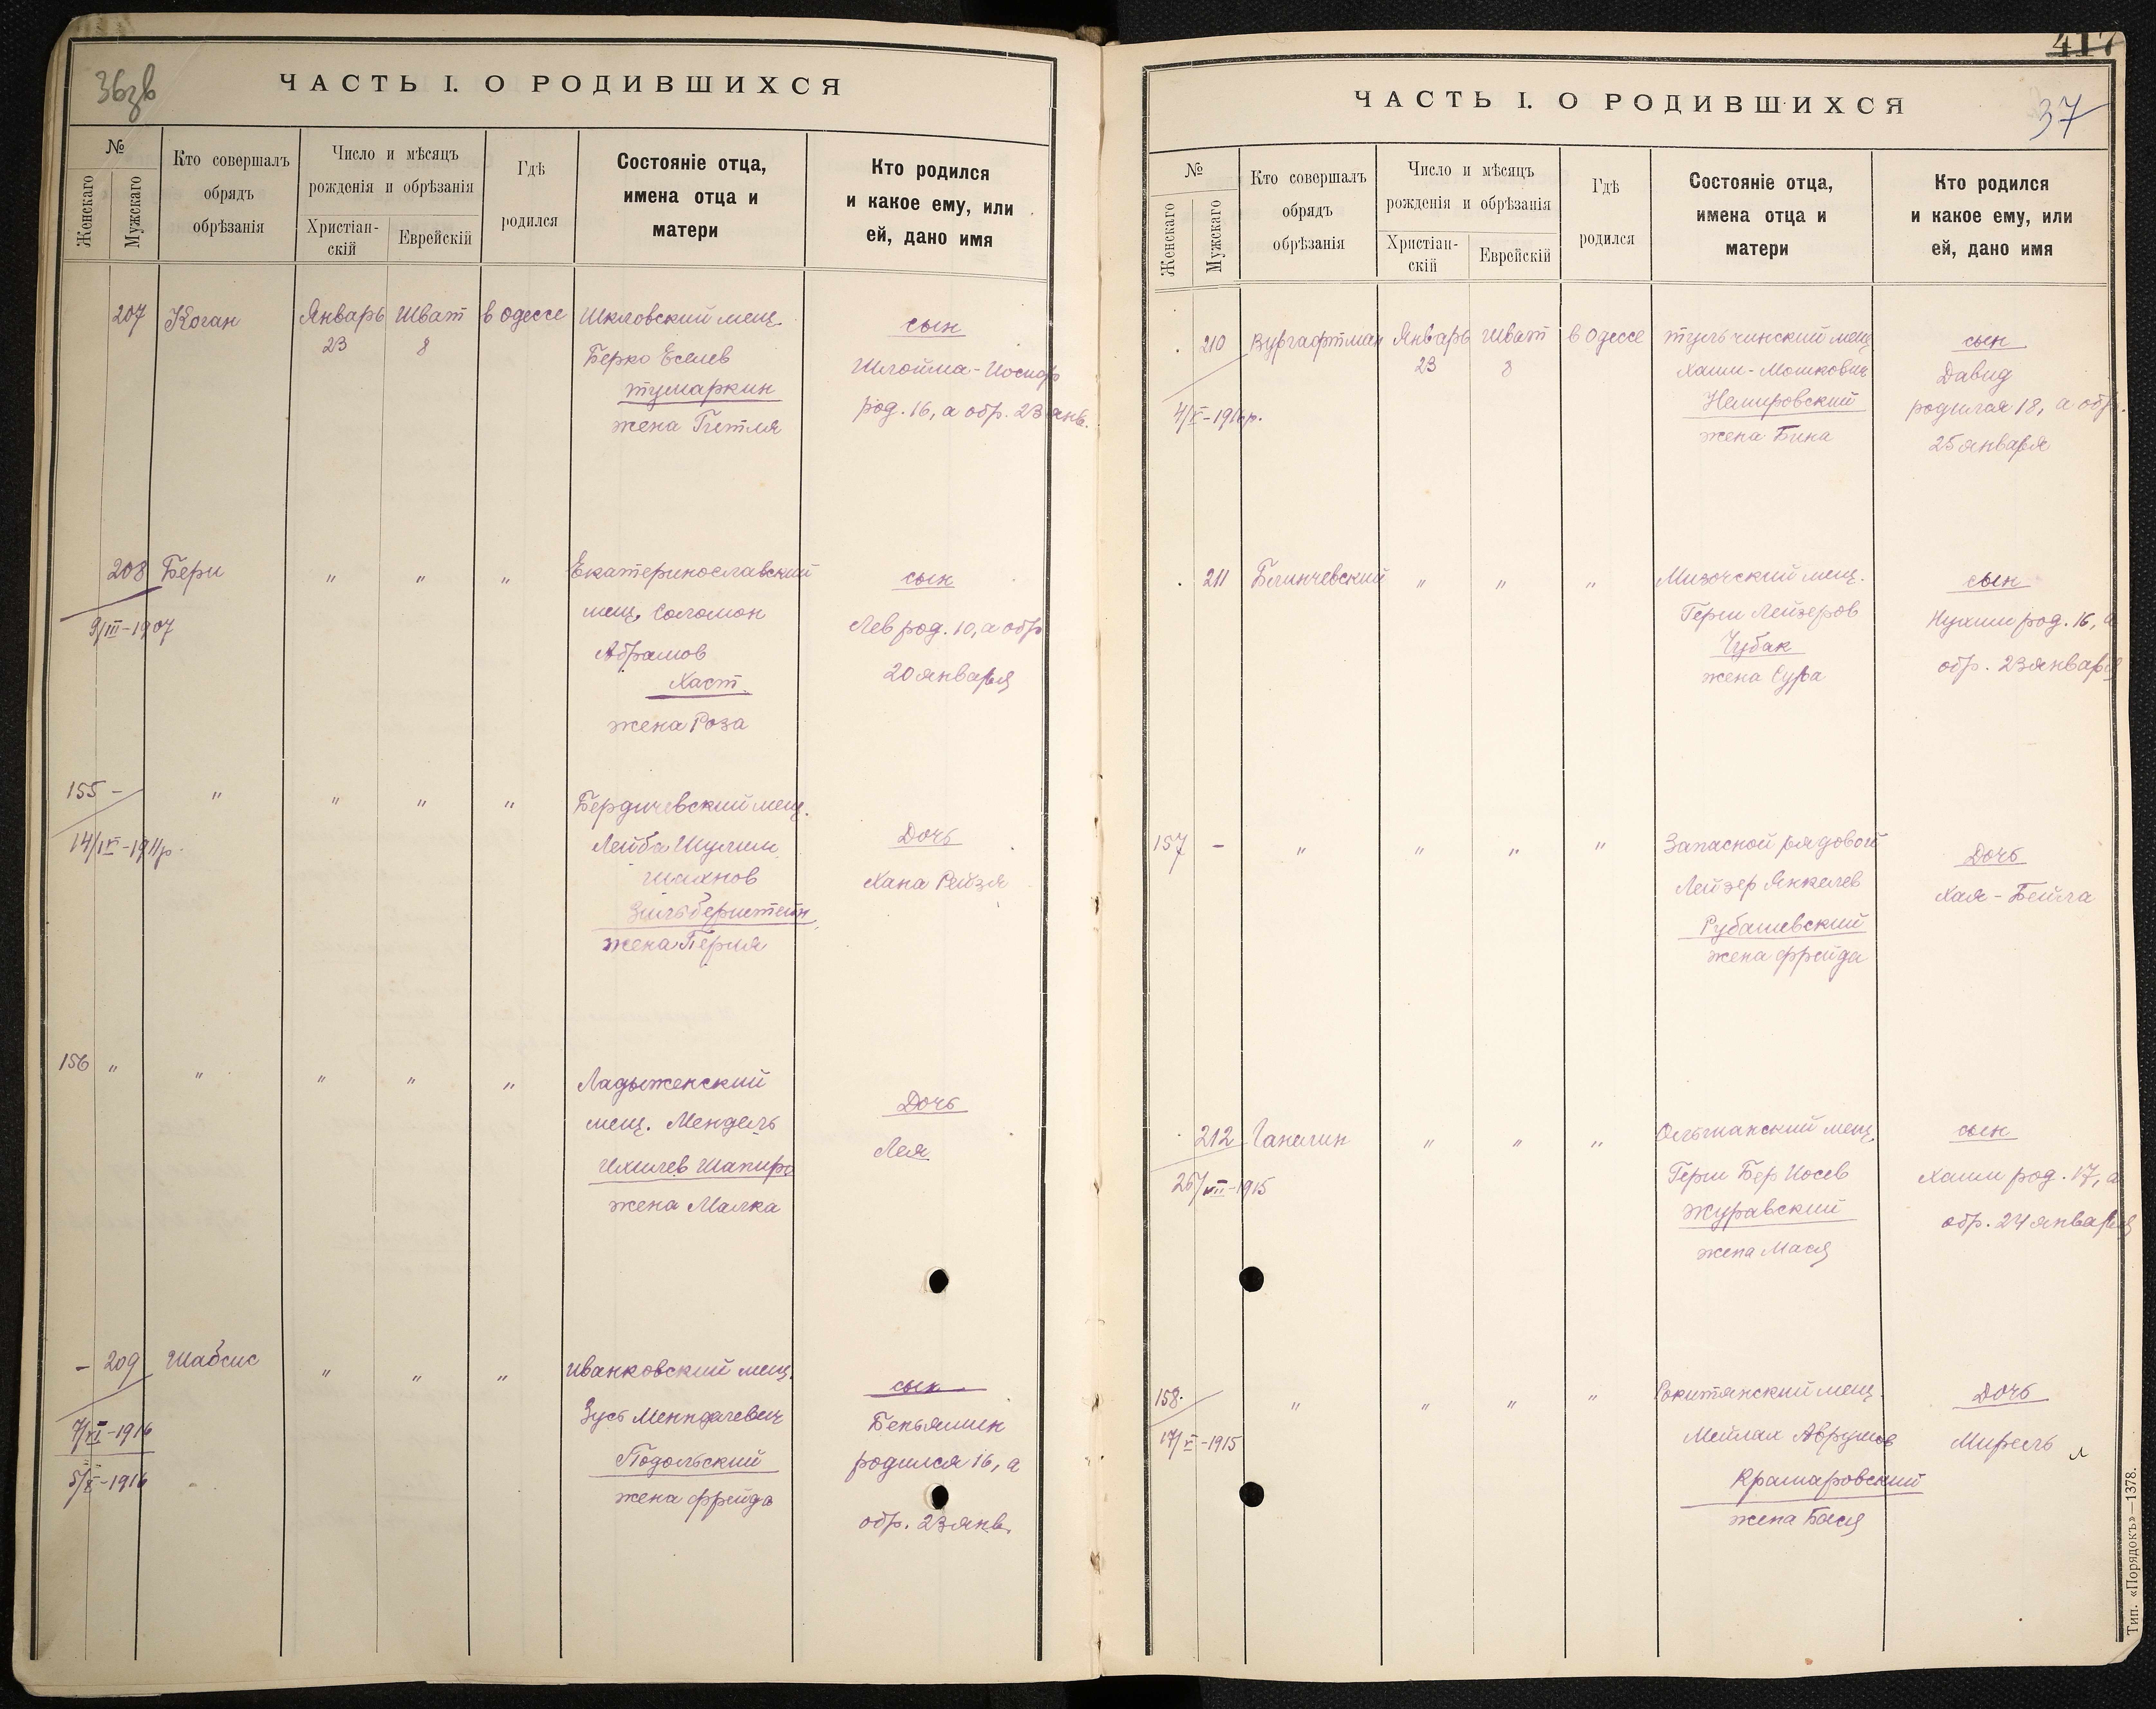 36зв
ЧАСТЬ I. О РОДИВШИХСЯ
№
Женскаго
Мужскаго
Кто совершалъ
обрядъ
обрѣзанія
Число и мѣсяцъ
рожденія и обрѣзанія
Христіан-
скій
Еврейскій
Гдѣ
родился
Состояніе отца,
имена отца и
матери
Кто родился
и какое ему, или
ей, дано имя
207 Коган Январь Шват в Одессе Шкловский мещ. сын
23 8 Берко Еселев Шлойма-Иосиф
тумаркин род. 16, а обр. 23 янв.
жена Гитля
208 Бери " " " Екатеринославский сын
9/III-1907 мещ. Соломон Лев род. 10, а обр
Абрамов 20 января
Хаст.
жена Роза
155 - " " " " Бердичевский мещ.
14/IV-1911р. Лейба Шулим Дочь
Шахнов Хана Рейзя
Зильберштейн
жена Перля
156 " " " " " Ладыженский Дочь
мещ. Мендель Лея
Ихилев Шапиро
жена Малка
- 209 Шабсис " " " Иванковский мещ. сын
7/VI-1916 Зусь Менделевич Беньямин
5/X-1916 Подольский родился 16, а
жена фрейда обр. 23 янв.
417
37
ЧАСТЬ I. О РОДИВШИХСЯ
№
Женскаго
Мужскаго
Кто совершалъ
обрядъ
обрѣзанія
Число и мѣсяцъ
рожденія и обрѣзанія
Христіан-
скій
Еврейскій
Гдѣ
родился
Состояніе отца,
имена отца и
матери
Кто родился
и какое ему, или
ей, дано имя
210 Вургафтман Январь Шват в Одессе тульчинский мещ сын
23 8 Хаим-Мошкович Давид
Немировский родился 18, а обр.
жена Бина 25 января
211 Блинчевский " " " Мизочский мещ. сын
Герш Лейзеров Нухим род. 16, а
Чубак обр. 23 января
жена Сура
157 - " " " " Запасной рядовой Дочь
Лейзер Янкелев Хая-Бейла
Рубашевский
жена фрейда
212 Ганелин " " " Ольшанский мещ. сын
26/VII-1915 Герш Бер Иосев Хаим род. 17, а
Журавский обр. 24 января
жена Мася
158. " " " " Рокитянский мещ. Дочь
17/V-1915 Мейлах Аврумов Мирель
Крамаровский
жена Бася
Тип. «Порядокъ»—1378.